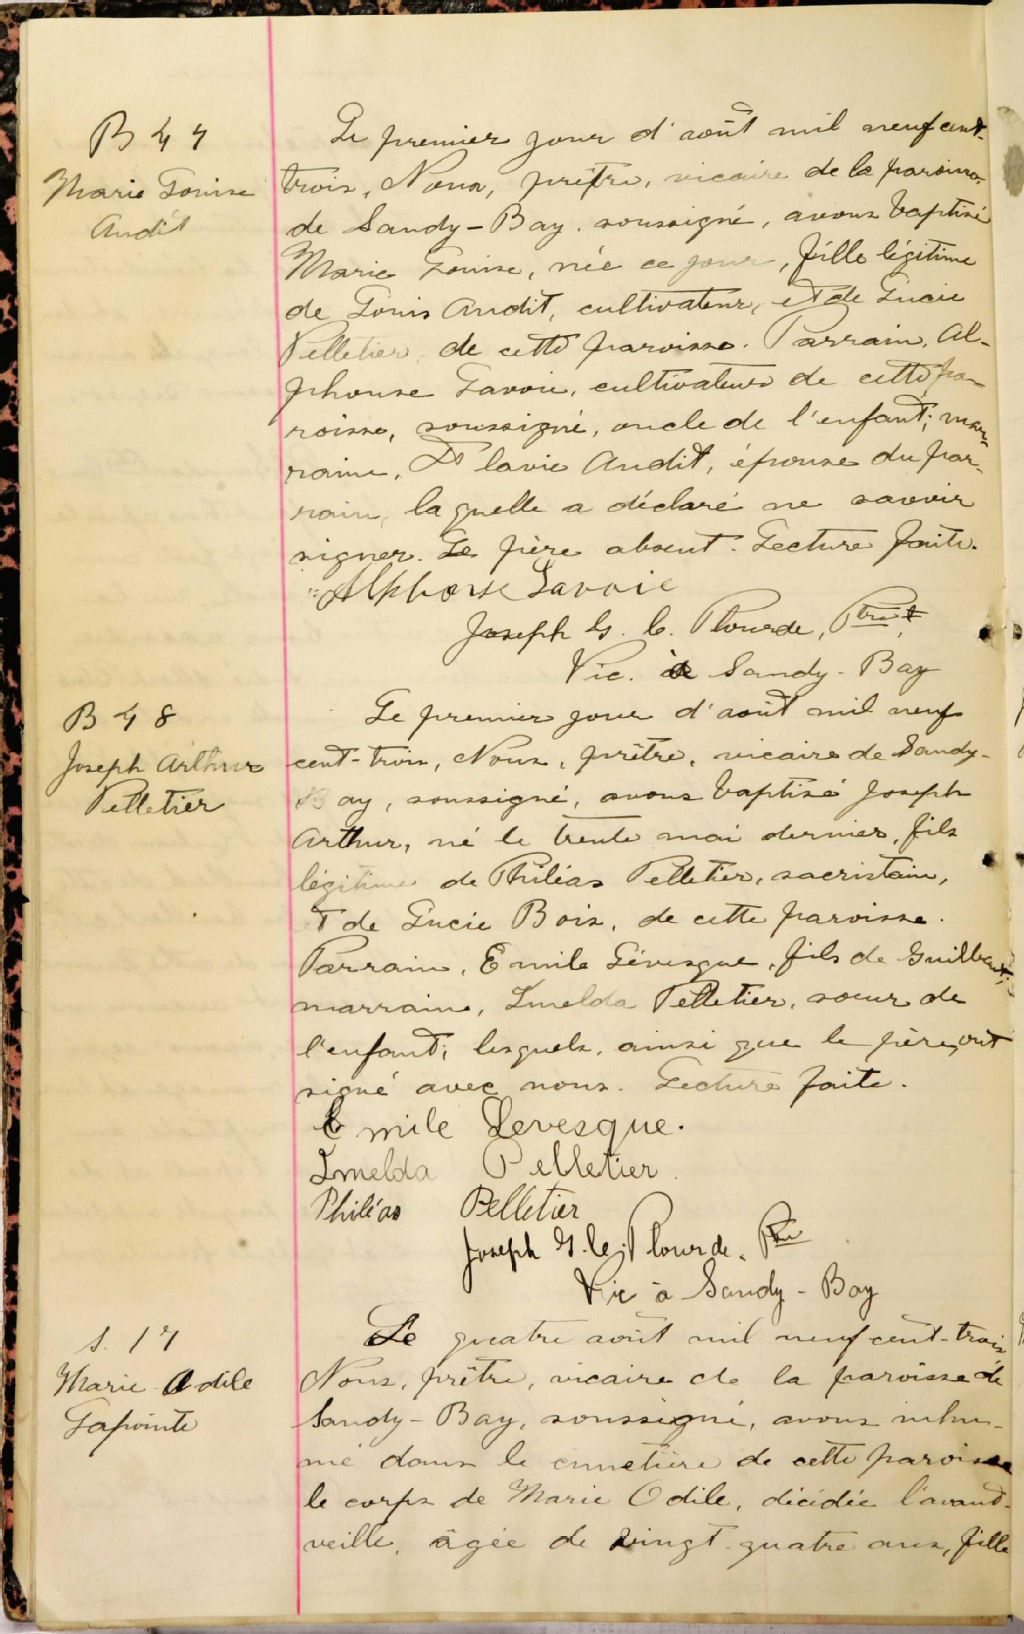 B 47
Marie Louise
Audit
Le premier jour d'août mil neuf cent-
trois, Nous, prêtre, vicaire de la paroisse
de Sandy-Bay, soussigné, avons baptisé
Marie Louise, née ce jour, fille légitime
de Louis Audit, cultivateur, et de Lucie
Pelletier, de cette paroisse. Parrain, Al-
phonse Lavoie, cultivateur de cette pa-
roisse, soussigné, oncle de l'enfant; mar-
raine, Flavie Audit, épouse du par-
rain, laquelle a déclaré ne savoir
signer. Le père absent. Lecture faite.
Alphonse Lavoie
Joseph G. C. Plourde, Ptre
Vic. à Sandy-Bay
B 48
Joseph Arthur
Pelletier
Le premier jour d'août mil neuf
cent-trois, Nous, prêtre, vicaire de Sandy-
Bay, soussigné, avons baptisé Joseph
Arthur, né le trente mai dernier, fils
légitime de Philéas Pelletier, sacristain,
et de Lucie Bois, de cette paroisse.
Parrain, Emile Lévesque, fils de Guilbert;
marraine, Imelda Pelletier, soeur de
l'enfant; lesquels, ainsi que le père, ont
signé avec nous. Lecture faite.
Emile Levesque.
Imelda Pelletier
Philéas Pelletier
Joseph G. C. Plourde, Ptre
Vic à Sandy-Bay
S. 17
Marie Odile
Lapointe
Le quatre août mil neuf cent-trois
Nous, prêtre, vicaire de la paroisse de
Sandy-Bay, soussigné, avons inhu-
mé dans le cimetière de cette paroisse
le corps de Marie Odile, décédée l'avant-
veille, âgée de vingt quatre ans, fille